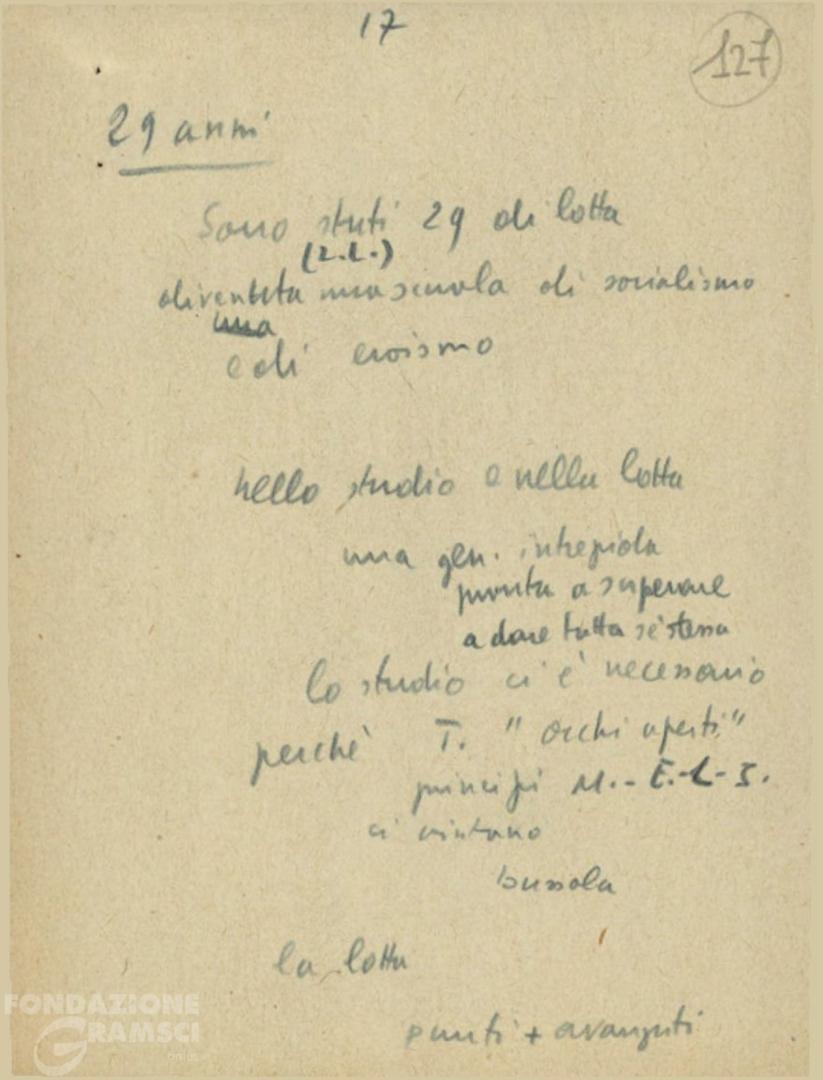 17
127
29 anni
Sono stati 29 di lotta
(L.L.)
diventata una scuola di socialismo
una
e di eroismo
nello studio e nella lotta
una gen. intrepida
pronta a superare
a dare tutta se stessa
lo studio ci è necessario
perché T. "occhi aperti"
principi M.-E.-L-S.
ci aiutano
bussola
la lotta
punti + avanzati
FONDAZIONE
GRAMSCI
onlus